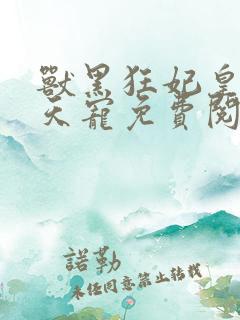 獸黑狂妃皇
天寵免費閱
諾勒
未經同意禁止轉載